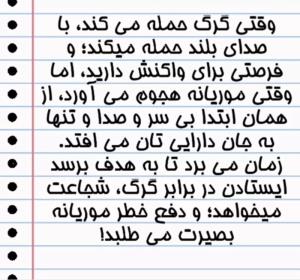 وقتی گرگ حمله می کند، با
صدای بلند حمله میکند؛ و
فرصتی برای واکنش دارید، اما
وقتی موریانه هجوم می آورد، از
همان ابتدا بی سر و صدا و تنها
به جان دارایی تان می افتد.
زمان می برد تا به هدف برسد
ایستادن در برابر گرگ، شجاعت
میخواهد؛ و دفع خطر موریانه
بصیرت می طلبد!